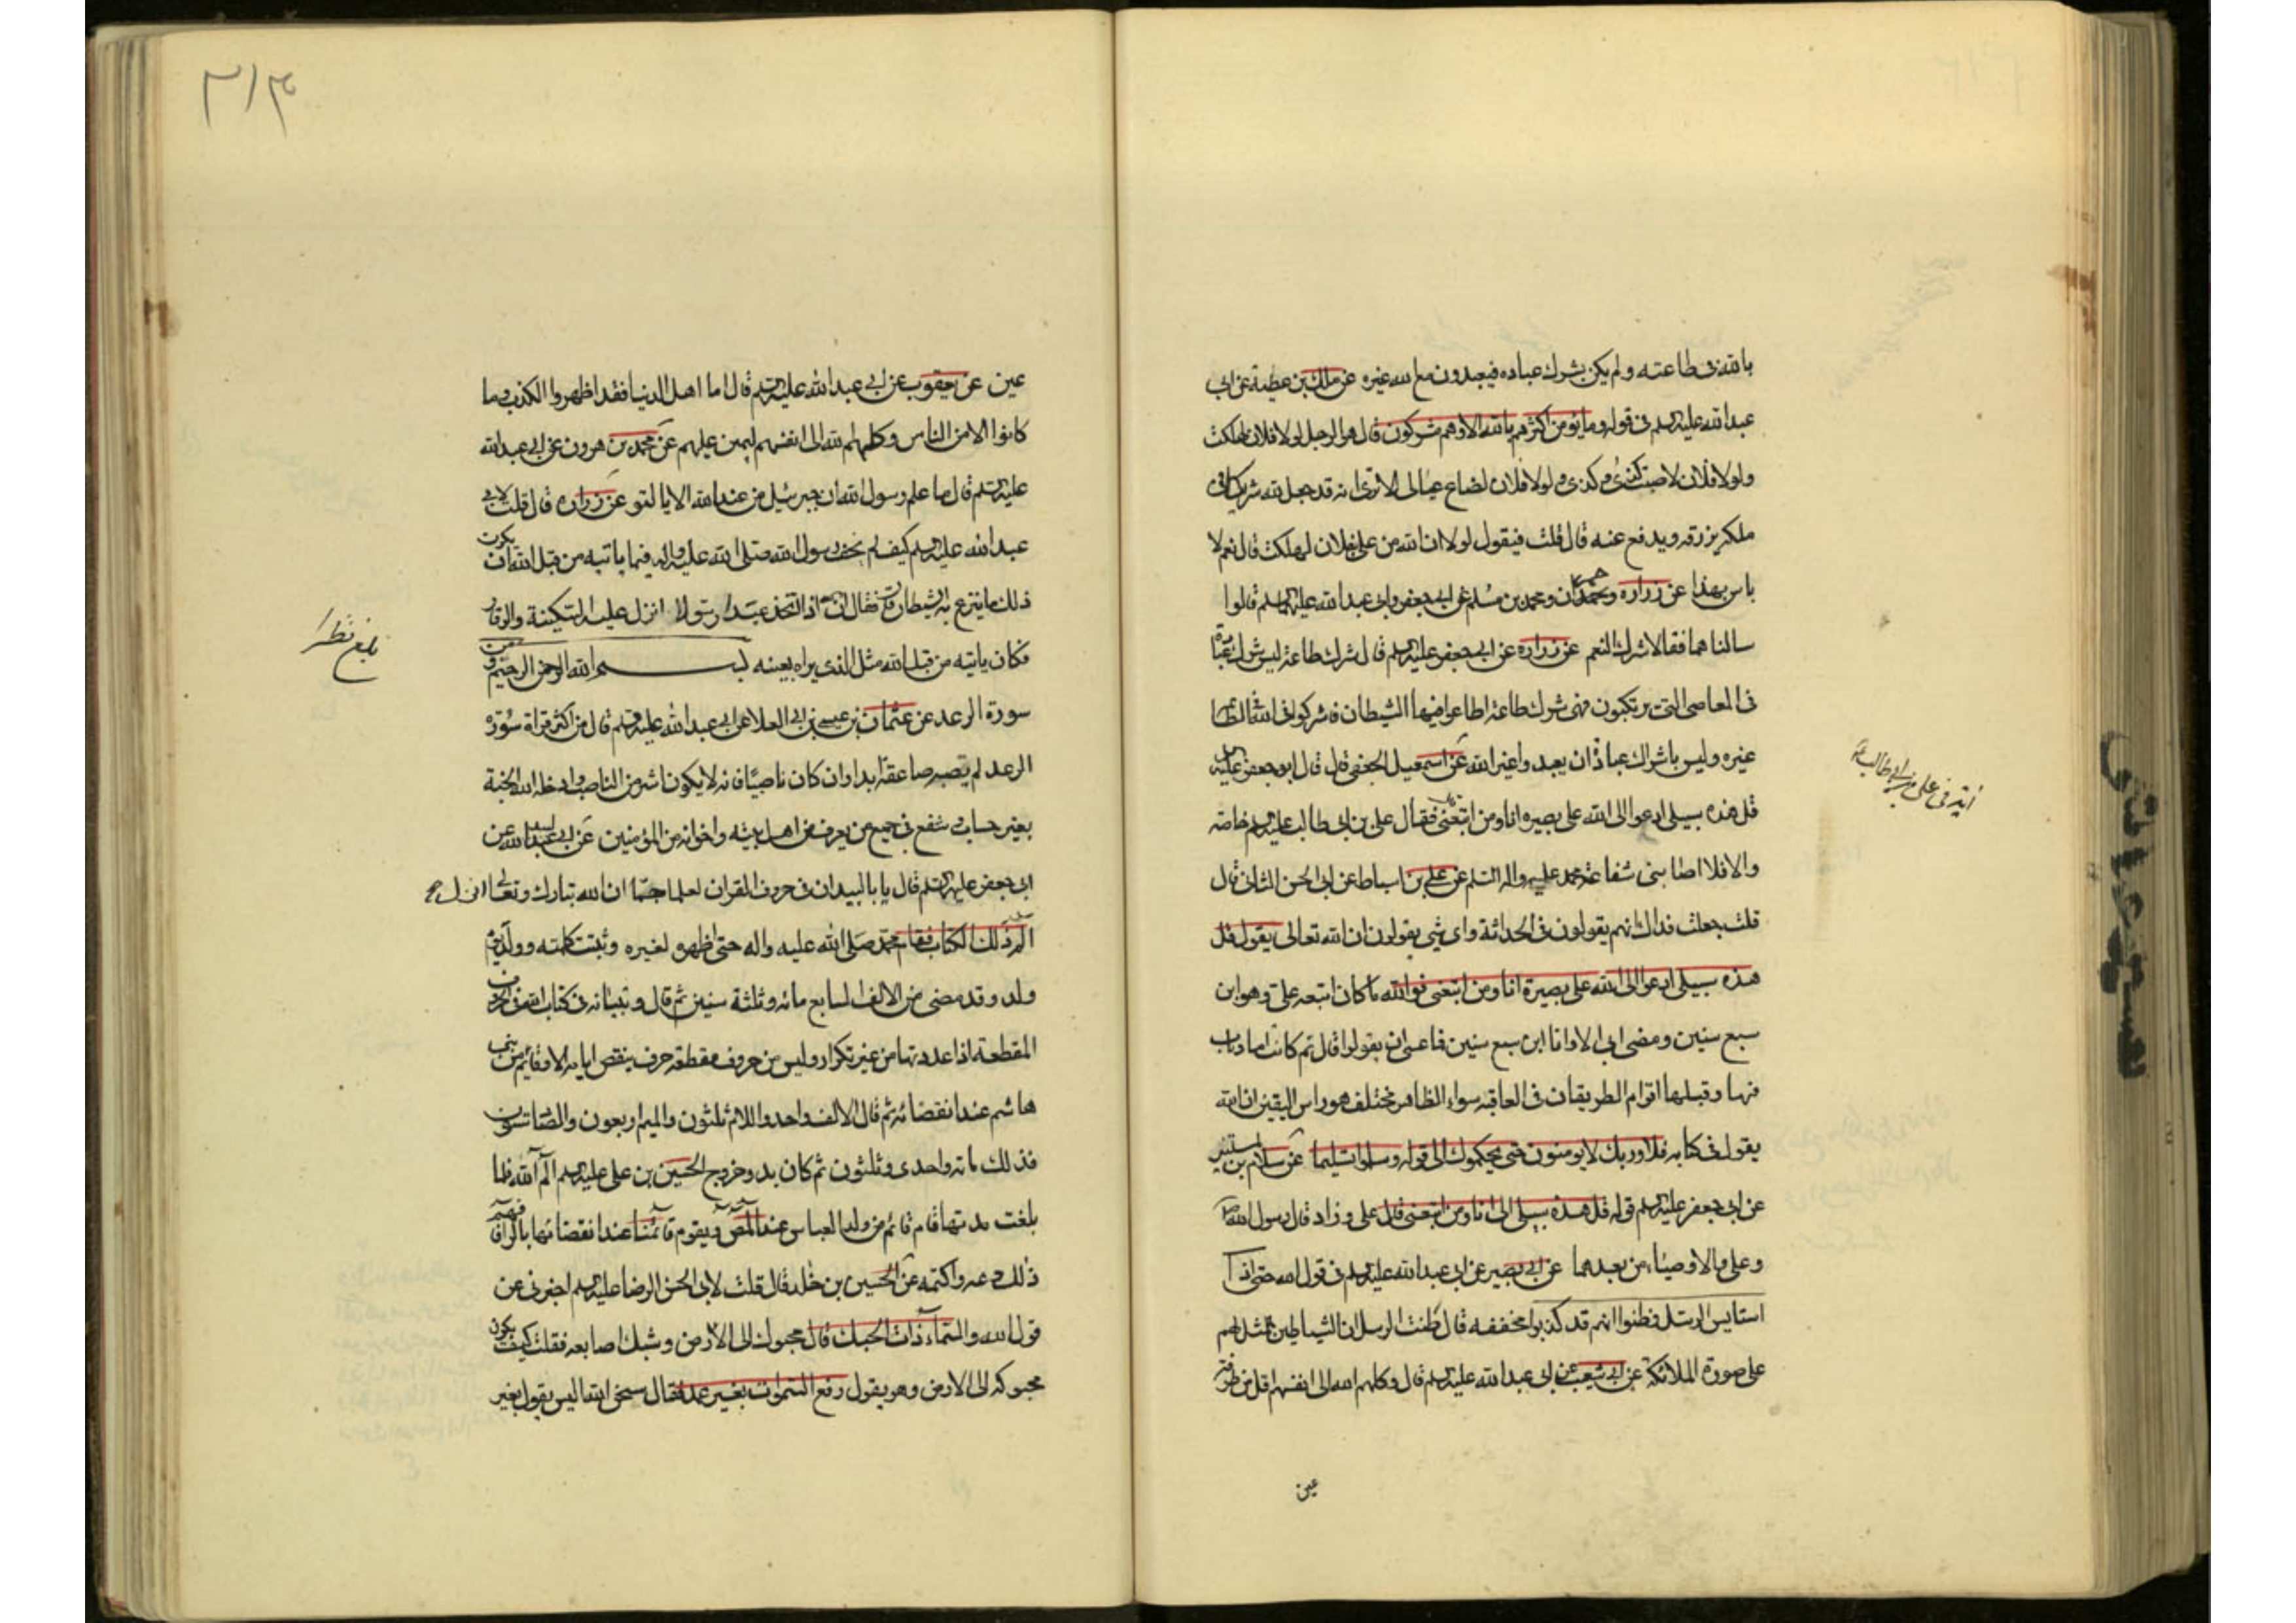 بالله فى طاعته ولم يكن بشرك عباده فيعبدون مع الله غيره عن مالك بن عطية عن ابى
عبد الله عليه السلم فى قوله وما يؤمن اكثرهم بالله الا وهم مشركون قال هو الرجل لولا فلان لهلكت
ولولا فلان لاصبت كذى وكذى ولولا فلان لضاع عيالى الا ترى انه قد جعل لله شريكا فى
ملكه يرزقه ويدفع عنه قال قلت فيقول لولا ان الله من على بفلان لهلكت قال نعم لا
باس بهذا عن زراره وحمران ومحمد بن مسلم عن ابى جعفر وابى عبد الله عليهما السلم قالوا
سالناهما فقالا شرك النعم عن زراره عن ابى جعفر عليه السلم قال شرك طاعة ليس شرك عبادة
فى المعاصى التى يرتكبون فهى شرك طاعة اطاعوا فيها الشيطان فاشركوا فى الله الطاعة
غيره وليس باشراك عبادة ان يعبدوا غير الله عن اسمعيل الجعفى قال قال ابو جعفر عليه السلم
قل هذه سبيلى ادعوا الى الله على بصيره انا ومن اتبعنى فقال على بن ابى طالب عليه السلم خاصه
والا فلا اصابنى شفاعة محمد عليه واله السلم عن على بن اسباط عن ابى الحسن الثانى قال
قلت جعلت فداك انهم يقولون فى الحداثة واى شى يقولون ان الله تعالى يقول قل
هذه سبيلى ادعوا الى الله على بصيرة انا ومن اتبعنى فوالله ما كان اتبعه على وهو ابن
سبع سنين ومضى ابى الا وانا ابن سبع سنين فما عسى ان يقولوا قال ثم كانت امارات
فيها وقبلها اقوام الطريقان فى العاقبه سواء الظاهر مختلف هو راس اليقين ان الله
يقول فى كتابه فلا وربك لا يومنون حتى يحكموك الى قوله وسلموا تسليما عن سلام بن المستنير
عن ابى جعفر عليه السلم قوله قل هذه سبيلى الى انا ومن اتبعنى قال على وزاد قال رسول الله
وعلى والاوصياء من بعدهما عن ابى بصير عن ابى عبد الله عليه السلم فى قول الله حتى اذا
استايس الرسل وظنوا انهم قد كذبوا مخففه قال ظنت الرسل ان الشياطين تمثل لهم
على صورة الملائكة عن ابى شعيب عن ابى عبد الله عليه السلم قال وكلهم الله الى انفسهم اقل من طرفة
عين
اية فى على بن ابى طالب
٣١٣
عين عن يعقوب عن ابى عبد الله عليه السلم قال اما اهل الدنيا فقد اظهروا الكذب وما
كانوا الا من الناس وكلهم الله الى انفسهم ليمن عليهم عن محمد بن هرون عن ابى عبد الله
عليه السلم قال ما علم رسول الله ان جبرئيل من عند الله الا بالتو عن زراره قال قلت لابى
عبد الله عليه السلم كيف لم يخف رسول الله صلى الله عليه واله فيما ياتيه من قبل الله ان يكون
ذلك ما ينزع به الشيطان قال فقال ان الله اذا اتخذ عبدا رسولا انزل عليه السكينة والوقار
فكان ياتيه من قبل الله مثل الذى يراه بعينه بسم الله الرحمن الرحيم ومن
سورة الرعد عن عثمان بن عيسى بن ابى العلا عن ابى عبد الله عليه السلم قال من اكثر قراة سورة
الرعد لم تصبه صاعقة ابدا وان كان ناصبيا فانه لا يكون اشر من الناصب وادخله الله الجنة
بغير حساب وشفع فى جميع من يعرف من اهل بيته واخوانه من المؤمنين عن ابى لبيد عن
ابى جعفر عليه السلم قال يا با لبيد ان فى حروف القران لعلما جما ان الله تبارك وتعالى انزل
الم ذلك الكتاب فقام محمد صلى الله عليه واله حتى ظهر لغيره وثبتت كلمته وولد يوم
ولد وقد مضى من الالف لسابع مائه وثلثة سنين ثم قال وتبيانه فى كتاب الله فى الحروف
المقطعة اذا عددتها من غير تكرار وليس من حروف مقطعة حرف ينقص ايامه الا وقائم من بنى
هاشم عند انقضائه ثم قال الالف واحد واللام ثلثون والميم اربعون والصاد تسعون
فذلك مائه واحدى وثلثون ثم كان بدو خروج الحسين بن على عليه السلم الم الله فلما
بلغت مدتها قام قائم من ولد العباس عند المص ويقوم قائمنا عند انقضائها بالر فافهم
ذلك وعه واكتمه عن الحسين بن خلد قال قلت لابى الحسن الرضا عليه السلم اخبرنى عن
قول الله والسماء ذات الحبك قال محبوك الى الارض وشبك اصابعه فقلت كيف يكون
محبوكه الى الارض وهو يقول رفع السموات بغير عمد فقال سبحن الله اليس يقول بغير
بلغ نظرا